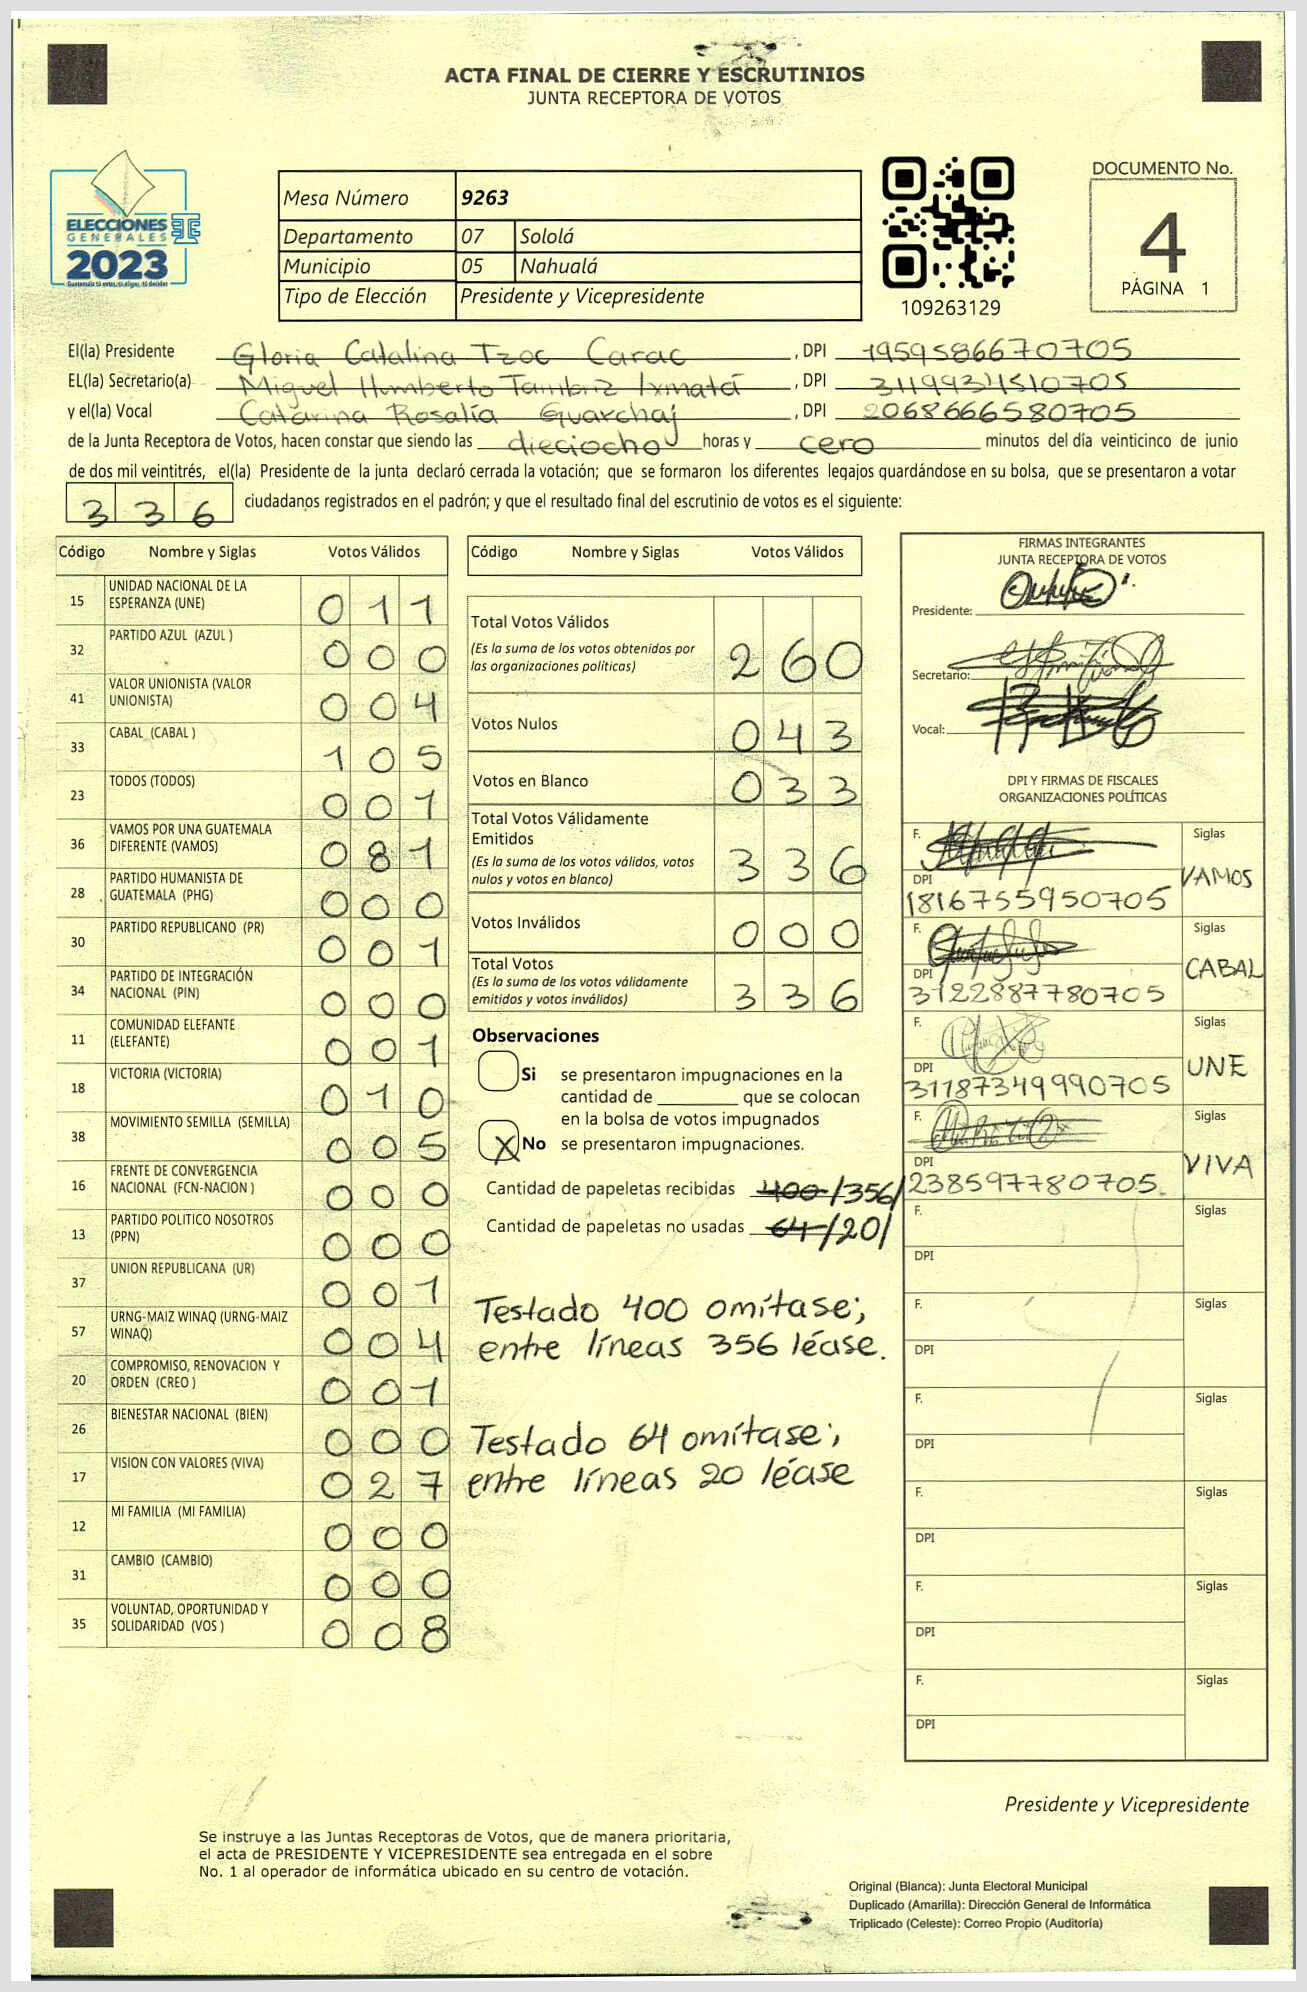 ACTA FINAL DE CIERRE Y ESCRUTINIOS
JUNTA RECEPTORA DE VOTOS
ELECCIONES
GENERALES
2023
Mesa Número 9263
Departamento 07 Sololá
Municipio 05 Nahualá
Tipo de Elección Presidente y Vicepresidente
109263129
DOCUMENTO No.
4
PÁGINA 1
El(la) Presidente Gloria Catalina Tzoc Carac, DPI 1959586670705
EL(la) Secretario(a) Miguel Humberto Tambriz Ixmatá, DPI 3119934510705
y el(la) Vocal Catarina Rosalía Guarchaj, DPI 2068666580705
de la Junta Receptora de Votos, hacen constar que siendo las dieciocho horas y cero minutos del día veinticinco de junio
de dos mil veintitrés, el(la) Presidente de la junta declaró cerrada la votación; que se formaron los diferentes legajos quardándose en su bolsa, que se presentaron a votar
336 ciudadanos registrados en el padrón; y que el resultado final del escrutinio de votos es el siguiente:
Código Nombre y Siglas Votos Válidos
15 UNIDAD NACIONAL DE LA ESPERANZA (UNE) 011
32 PARTIDO AZUL (AZUL ) 000
41 VALOR UNIONISTA (VALOR UNIONISTA) 004
33 CABAL (CABAL ) 105
23 TODOS (TODOS) 001
36 VAMOS POR UNA GUATEMALA DIFERENTE (VAMOS) 081
28 PARTIDO HUMANISTA DE GUATEMALA (PHG) 000
30 PARTIDO REPUBLICANO (PR) 001
34 PARTIDO DE INTEGRACIÓN NACIONAL (PIN) 000
11 COMUNIDAD ELEFANTE (ELEFANTE) 001
18 VICTORIA (VICTORIA) 010
38 MOVIMIENTO SEMILLA (SEMILLA) 005
16 FRENTE DE CONVERGENCIA NACIONAL (FCN-NACION ) 000
13 PARTIDO POLITICO NOSOTROS (PPN) 000
37 UNION REPUBLICANA (UR) 001
57 URNG-MAIZ WINAQ (URNG-MAIZ WINAQ) 004
20 COMPROMISO, RENOVACION Y ORDEN (CREO ) 001
26 BIENESTAR NACIONAL (BIEN) 000
17 VISION CON VALORES (VIVA) 027
12 MI FAMILIA (MI FAMILIA) 000
31 CAMBIO (CAMBIO) 000
35 VOLUNTAD, OPORTUNIDAD Y SOLIDARIDAD (VOS ) 008
Código Nombre y Siglas Votos Válidos
Total Votos Válidos 260
(Es la suma de los votos obtenidos por
las organizaciones políticas)
Votos Nulos 043
Votos en Blanco 033
Total Votos Válidamente
Emitidos 336
(Es la suma de los votos válidos, votos
nulos y votos en blanco)
Votos Inválidos 000
Total Votos 336
(Es la suma de los votos válidamente
emitidos y votos inválidos)
Observaciones
Si se presentaron impugnaciones en la
cantidad de ________ que se colocan
en la bolsa de votos impugnados
X No se presentaron impugnaciones.
Cantidad de papeletas recibidas 400/356/
Cantidad de papeletas no usadas 64/20/
Testado 400 omítase;
entre líneas 356 léase.
Testado 64 omítase;
entre líneas 20 léase
FIRMAS INTEGRANTES
JUNTA RECEPTORA DE VOTOS
Presidente:
Secretario:
Vocal:
DPI Y FIRMAS DE FISCALES
ORGANIZACIONES POLÍTICAS
F. Siglas
DPI VAMOS
1816755950705
F. Siglas
DPI CABAL
3122887780705
F. Siglas
DPI UNE
31187349990705
F. Siglas
DPI VIVA
238597780705
F. Siglas
DPI
F. Siglas
DPI
F. Siglas
DPI
F. Siglas
DPI
F. Siglas
DPI
F. Siglas
DPI
Presidente y Vicepresidente
Se instruye a las Juntas Receptoras de Votos, que de manera prioritaria,
el acta de PRESIDENTE Y VICEPRESIDENTE sea entregada en el sobre
No. 1 al operador de informática ubicado en su centro de votación.
Original (Blanca): Junta Electoral Municipal
Duplicado (Amarilla): Dirección General de Informática
Triplicado (Celeste): Correo Propio (Auditoría)